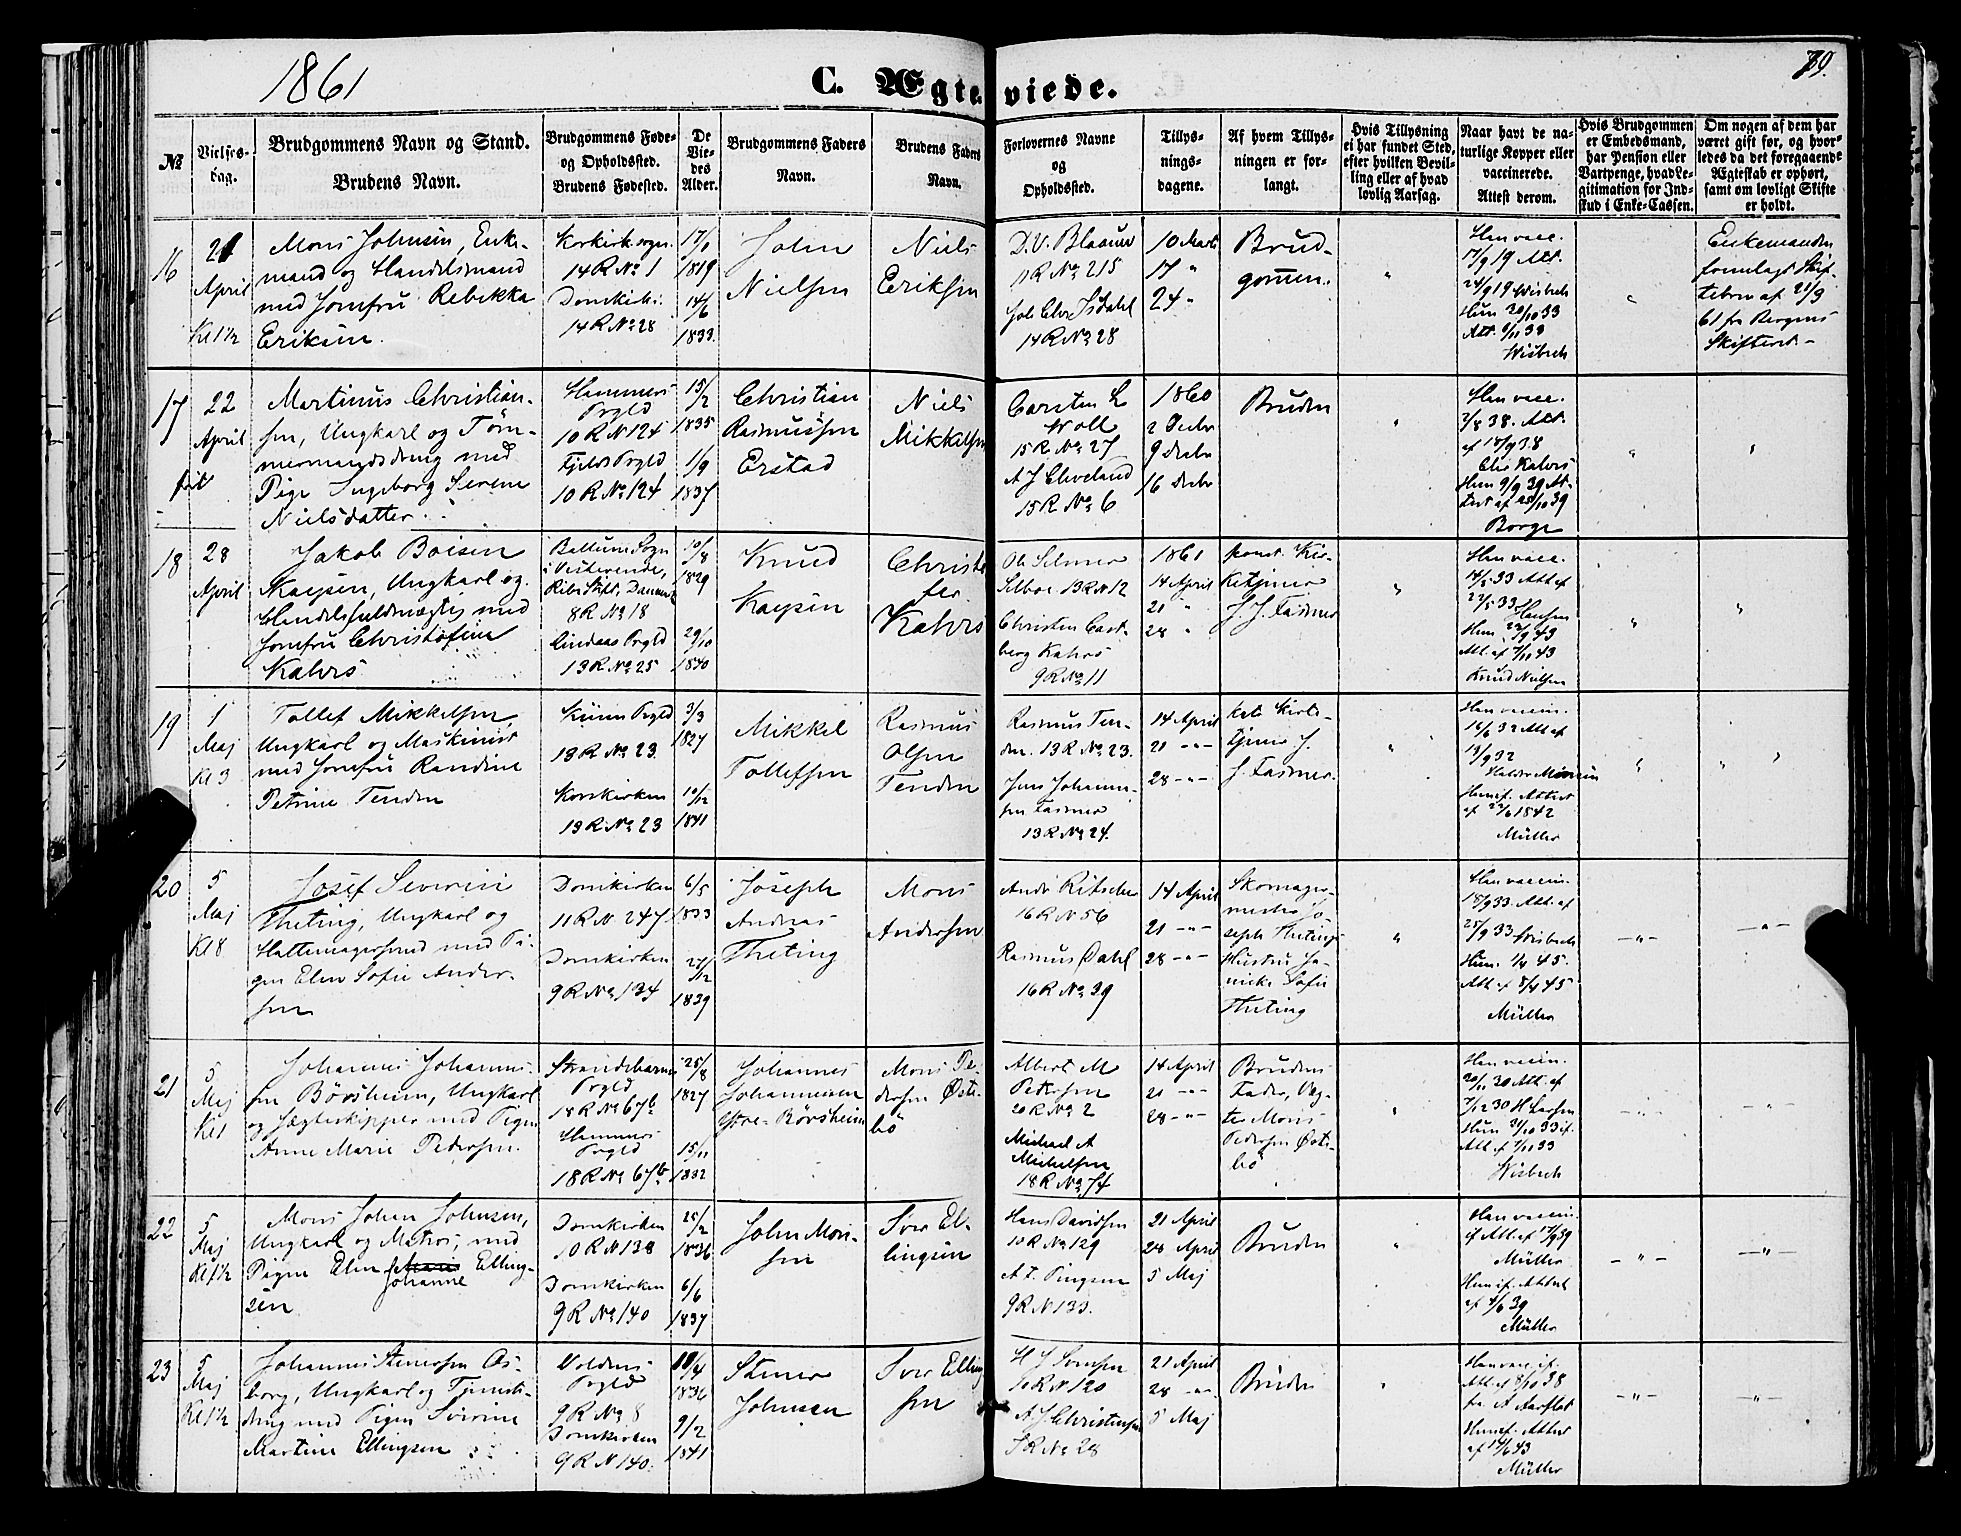 1861
C. Ægteviede.
79.
№
Vielses-
dag.
Brudgommens Navn og Stand.
Brudens Navn.
Brudgommens Føde-
og Opholdssted.
Brudens Fødested.
De
Vie-
des
Alder.
Brudgommens Faders
Navn.
Brudens Faders
Navn.
Forlovernes Navne
og
Opholdssted.
Tillys-
nings-
dagene.
Af hvem Tillys-
ningen er for-
langt.
Hvis Tillysning
ei har fundet Sted,
efter hvilken Bevil-
ling eller af hvad
lovlig Aarsag.
Naar havt de na-
turlige Kopper eller
vaccinerede.
Attest derom.
Hvis Brudgommen
er Embedsmand,
har Pension eller
Vartpenge, hvad Le-
gitimation for Ind-
skud i Enke-Cassen.
Om nogen af dem har
været gift før, og hvor-
ledes da det foregaaende
Ægteskab er ophørt,
samt om lovligt Skifte
er holdt.
16
21
April
Kl 1½
Mons Johnsen, Enke-
mand og Handelsmand
med Jomfru Rebekka
Eriksen.
Korskirk. sogn.
14 R No 1
Domkirk:
14 R No 28
17/1
1819
14/6
1833.
John
Nielsen
Niels
Eriksen
D. V. Blaauw
11 R No 215
Joh Chr Isdahl
14 R No 28
10 Marts
17 "
24 "
Brud-
gommen.
"
Han vacc.
17/9 19 Att.
24/9 19 Wisbech
Hun 20/10 33
Att. 1/11 33
Wisbech
"
Enkemanden
foreelagt Skif-
tebrev af 21/3
61 fra Bergens
Skifteret -
17
22
April
Martinus Christian-
sen, Ungkarl og Tøm-
mermandsdreng med
Pige Ingeborg Serene
Nielsdatter.
Hammers
Prgld
10 R N 124
Fjelds Prgld
10 R No 124
15/2
1835
1/9
1837
Christian
Rasmussen
Erstad
Niels
Mikkelsen
Carsten L
Woll
15 R No 27
A J Cleveland
15 R No 6
1860
2 Decbr
9 Decbr
16 Decbr
Bruden
"
Han vacc.
2/8 38. Att.
af 18/9 38
Chr Kahrs
Hun 9/9 39 At-
test af 25/10 39
Borge
"
"
18
28
April
Jakob Boisen
Kaysen, Ungkarl og
Handelsfuldmægtig med
Jomfru Christofine
Kahrs
Ballum Sogn
i Vesterende,
Ribe Stift, Danmark
8 R No 18
Lindaas Prgld
13 R No 25
10/8
1829
29/10
1840
Knud
Kaysen
Christo-
fer
Kahrs
Ole Selmer
Selboe 13 R N 12
Christen Cast-
berg Kahrs
9 R No 11
1861
14 April
21 "
28 "
const. Kir-
ketjener
J. J. Fasmer
"
Han vacc.
14/5 33 Att af
22/5 33
Hansen
Hun 22/9 43
Att. af 7/10 43
Knud Nielsen
"
"
19
1
Maj
Kl 3
Tollef Mikkelsen,
Ungkarl og Maskinist
med Jomfru Randine
Petrine Tenden
Prgld
13 R No 23
Korskirken
13 R No 23
3/3
1827
10/12
1841
Mikkel
Tollefsen
Rasmus
Olsen
Tenden
Rasmus Ten-
den. 13 R No 23.
Jens Johann-
sen Fasmer
13 R No 24.
14 April
21 -"-
28 -"-
Kirke-
tjener J.
J. Fasmer.
"
Han vaccin.
14/6 32 Att af
13/9 32
Hun if. Attest
af 22/6 1842
Müller
"
"
"
20
5
Maj
Kl 8
Josef Severin
Theting, Ungkarl og
Hattemagersvend med Pi-
gen Elen Sofie Ander-
sen
Domkirken
11 R N 247
Domkirken
9 R No 134
6/5
1833
27/12
1839
Joseph
Andreas
Theting
Mons
Andersen
Andr Ritscher
16 R N 56
Rasmus Dahl
16 R No 39
14 April
21 -"-
28 -"-
Skomager-
mester Jo-
seph Thetings
Hustru Ja-
nicke Sofie
Theting
"
Han vaccin.
18/9 33. Att. af
25/9 33 Wisbech
Hun. 1/4 45.
Att. af 8/4 45
Müller
-"-
-"-
21
5
Maj
Kl 1
Johannes Johannes-
sen Børsheim, Ungkarl
og Jægteskipper med Pigen
Anne Marie Pedersen.
Strandebarms
Prgld
18 R No 67b
Hammers
Prgld
18 R No 67b
25/8
1827
15/11
1832
Johannes
Johannesen
Ytre-Børsheim
Mons Pe-
dersen Øste-
bø
Albert M
Petersen
20 R No 2
Michael A
Michelsen
18 R No 74
14 April
21 -"-
28 -"-
Brudens
Fader, Væg-
ter Mons
Pedersen Øste-
bø
"
Han vaccin.
20/11 30 Att. af
7/12 30 H Larsen
Hun 31/10 33 if.
Att af 7/11 33
Wisbech
-"-
-"-
22
5
Maj
Kl 1½
Mons Johan Johnsen,
Ungkarl og Matros, med
Pigen Elen Johanne Elling-
sen
Domkirken
10 R N 138
Domkirken
9 R No 140
25/2
1836
6/6
1837
John Mon-
sen
Sver El-
lingsen
Hans Davidsen
10 R No 129
A T. Pingsen
9 R N 133.
21 April
28 April
5 Maj
Bruden
"
Han vaccin.
if Att. af 17/9 39
Müller
Hun if. Attest
af 4/6 39
Müller
-"-
-"-
23
5
Maj
Kl 1½
Johannes Stenersen As-
borg, Ungkarl og Tjeneste-
dreng med Pigen Severine
Martine Ellingsen
Voldens
Prgld
9 R No 8
Domkirken
9 R N 140.
10/4
1836
9/2
1841
Stener
Johnsen
Sver Elling-
sen
10 R N 120
A J Christensen
R No 28
21 April
28 -"-
5 Maj
Bruden
"
Han vacc. if.
Att af 8/10 38
fra A Aarflot
Hun if. Attest
af 14/6 43
Müller
-"-
-"-